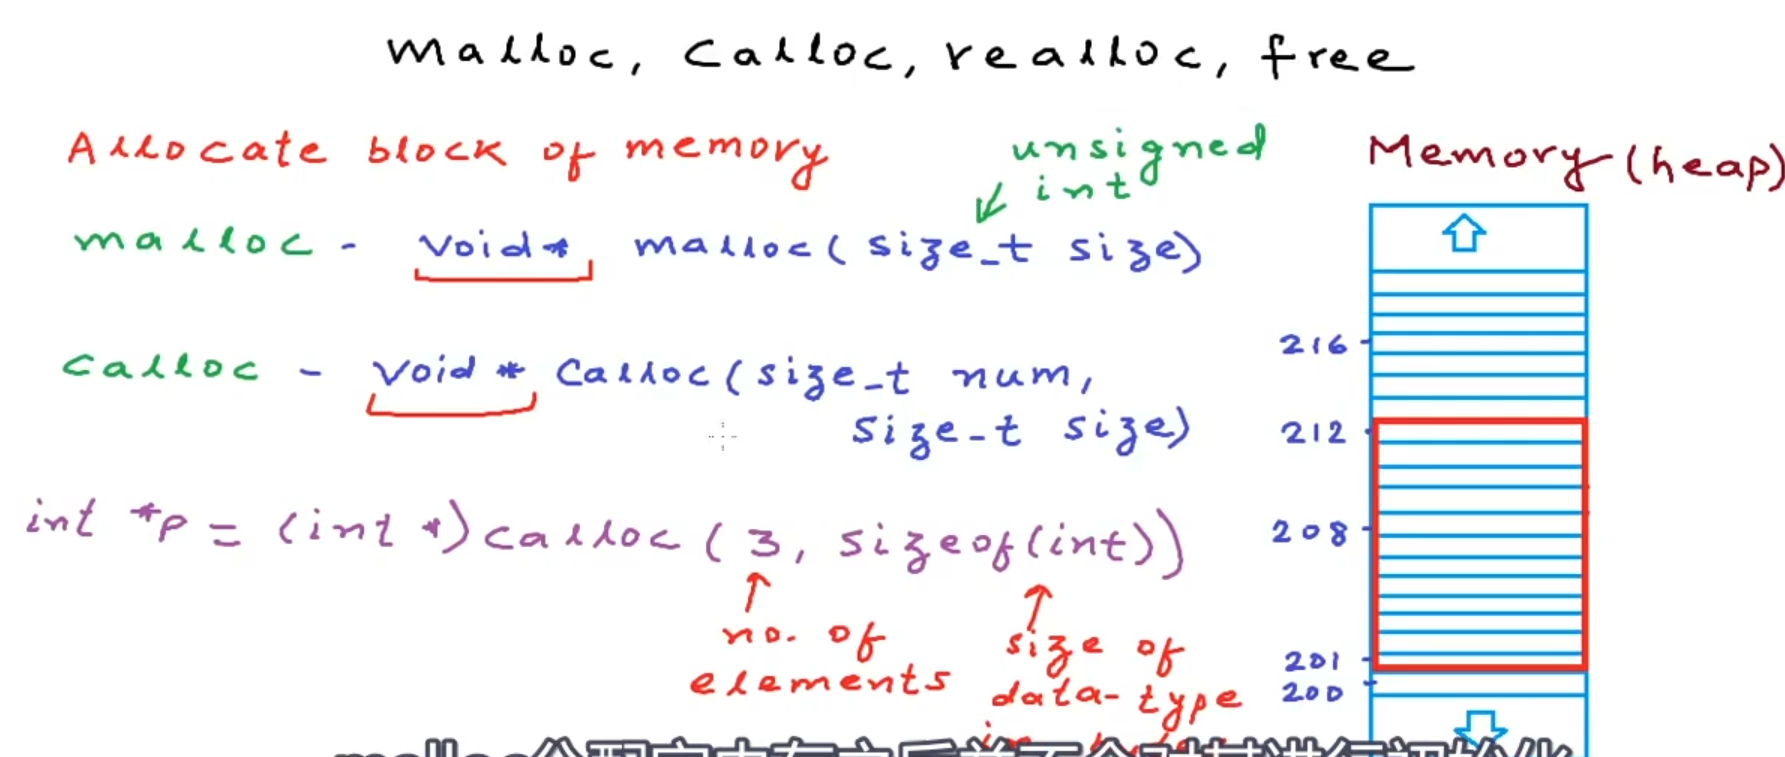 malloc, calloc, realloc, free
Allocate block of memory
unsigned
int
Memory (heap)
malloc - void* malloc(size_t size)
calloc - void* calloc(size_t num,
size_t size)
int *p = (int *)calloc(3, sizeof(int))
no. of
elements
size of
data-type
216
212
208
201
200